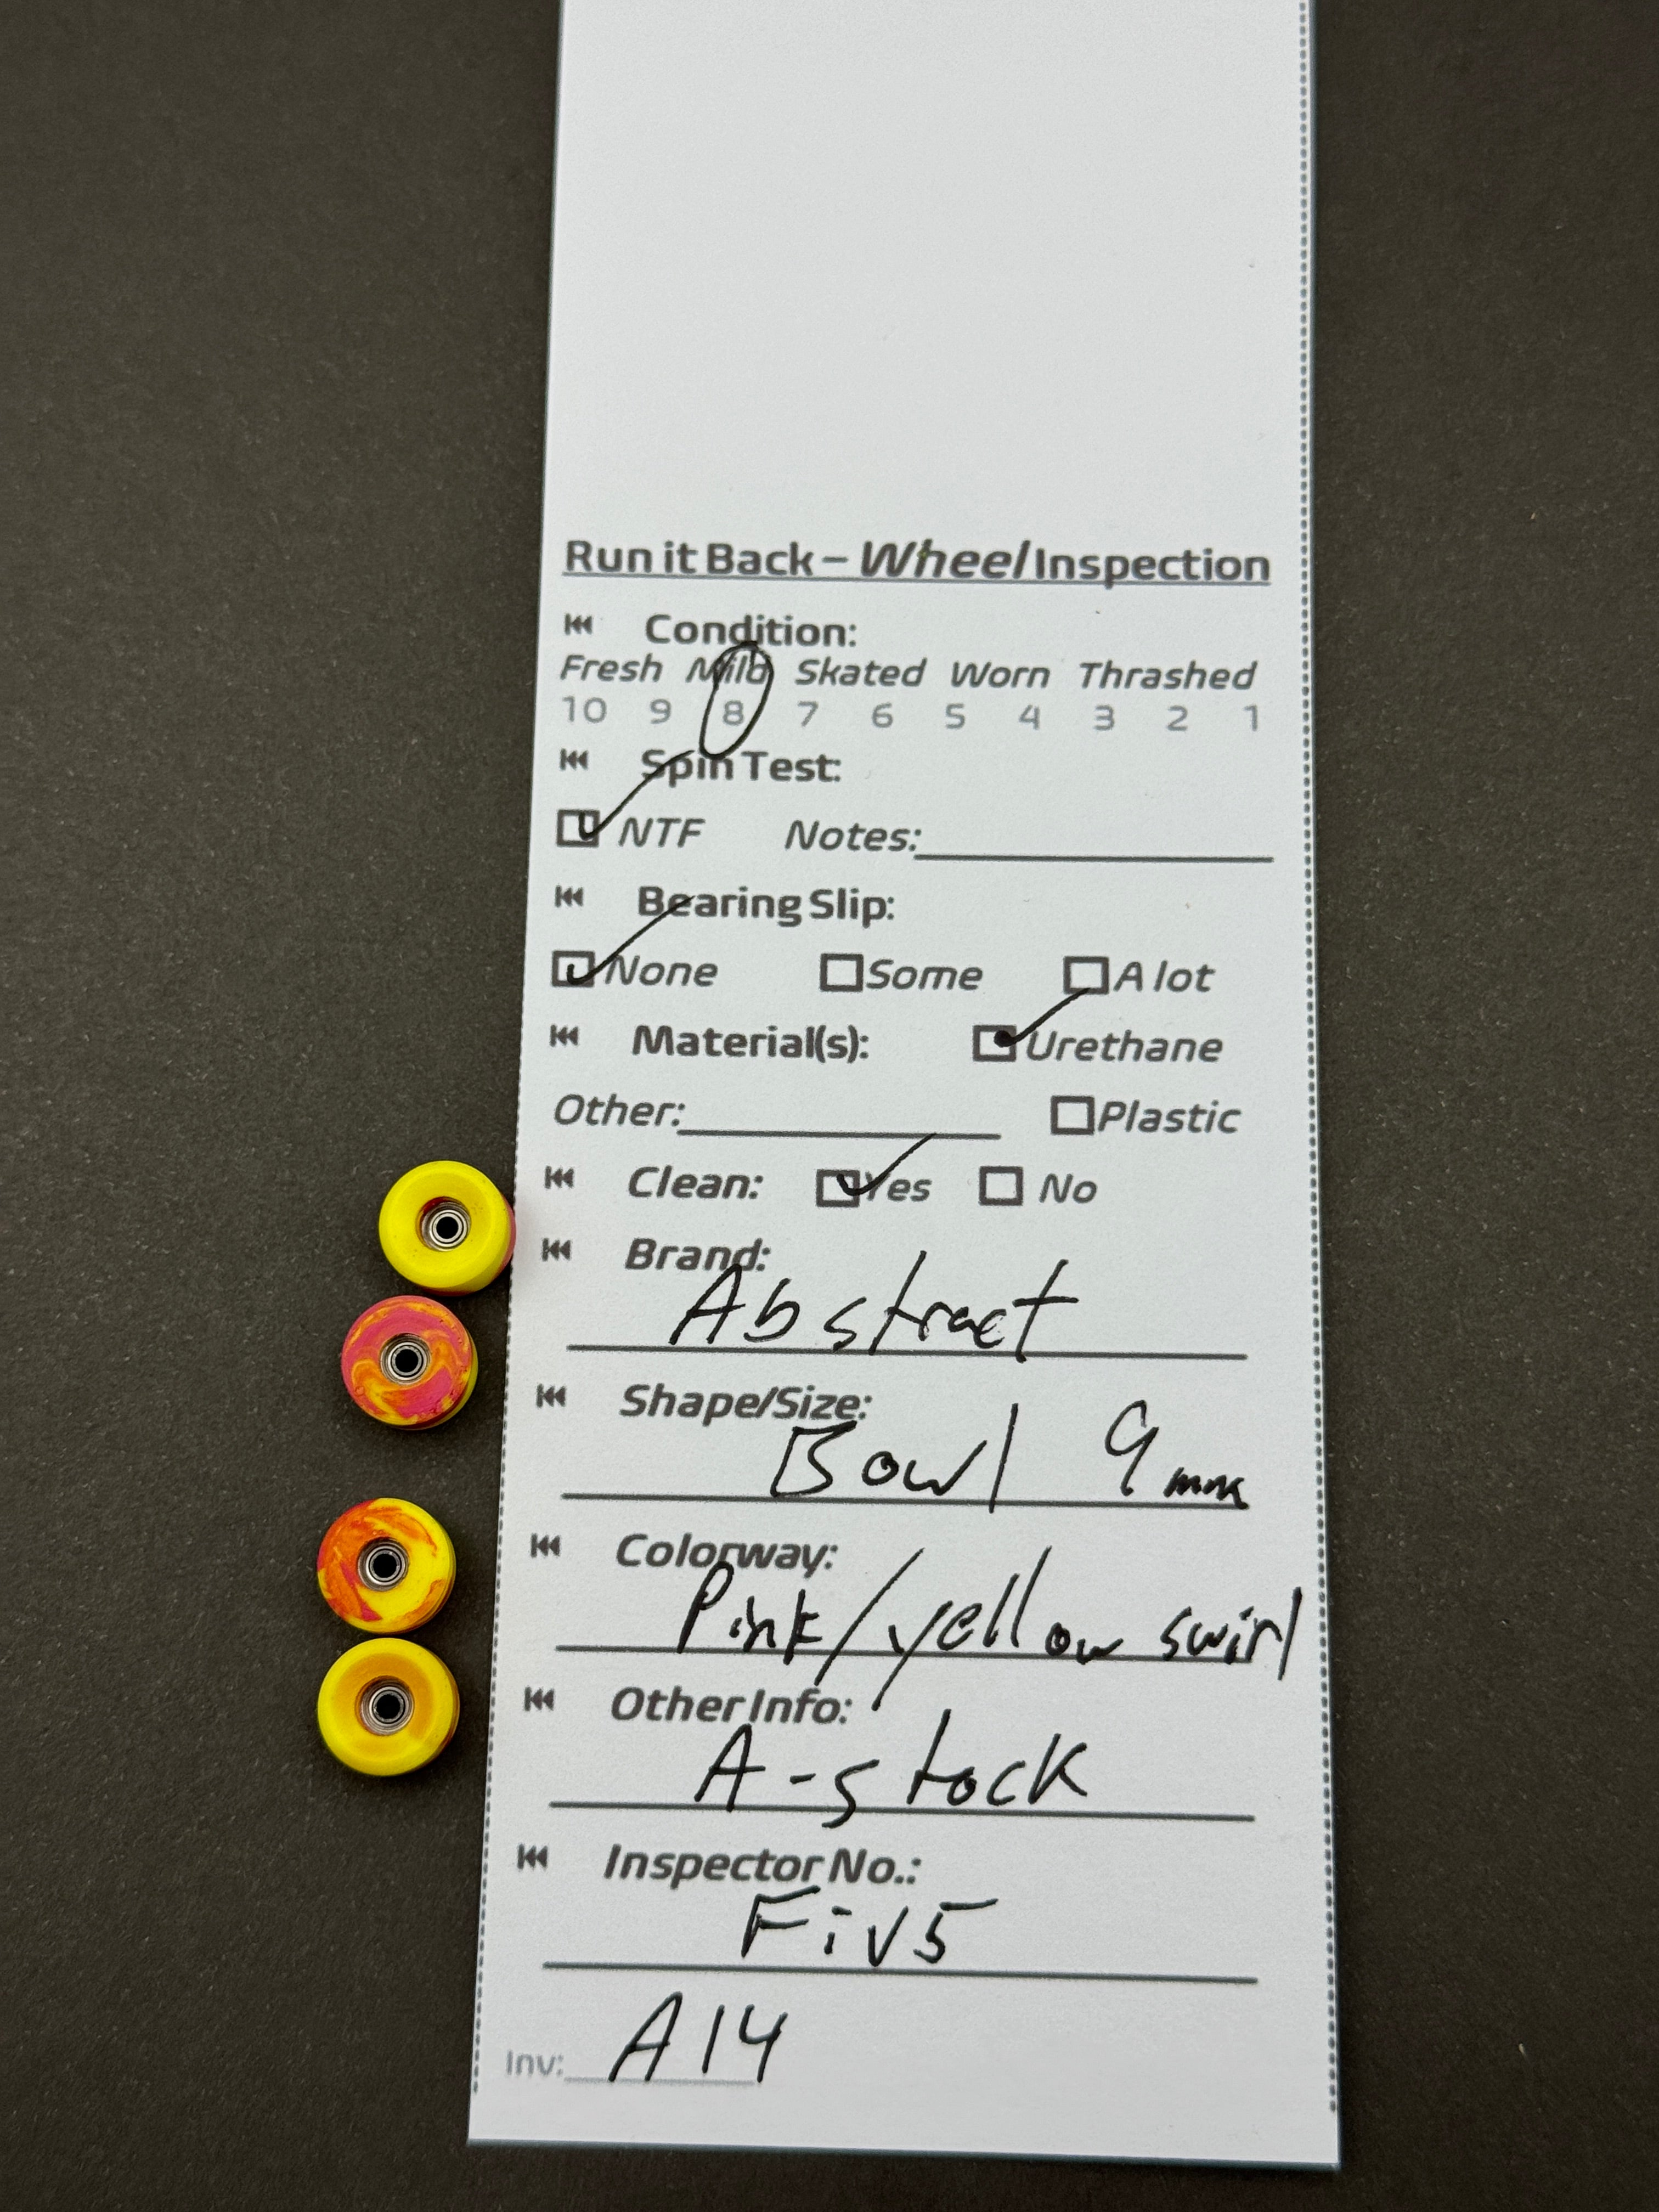 Run it Back – Wheel Inspection
Condition:
Fresh Mild Skated Worn Thrashed
10 9 8 7 6 5 4 3 2 1
Spin Test:
NTF Notes:
Bearing Slip:
None Some A lot
Material(s): Urethane
Other: Plastic
Clean: Yes No
Brand:
Abstract
Shape/Size:
Bowl 9mm
Colorway:
Pink/yellow swirl
Other Info:
A-stock
Inspector No.:
Fiv5
Inv: A14